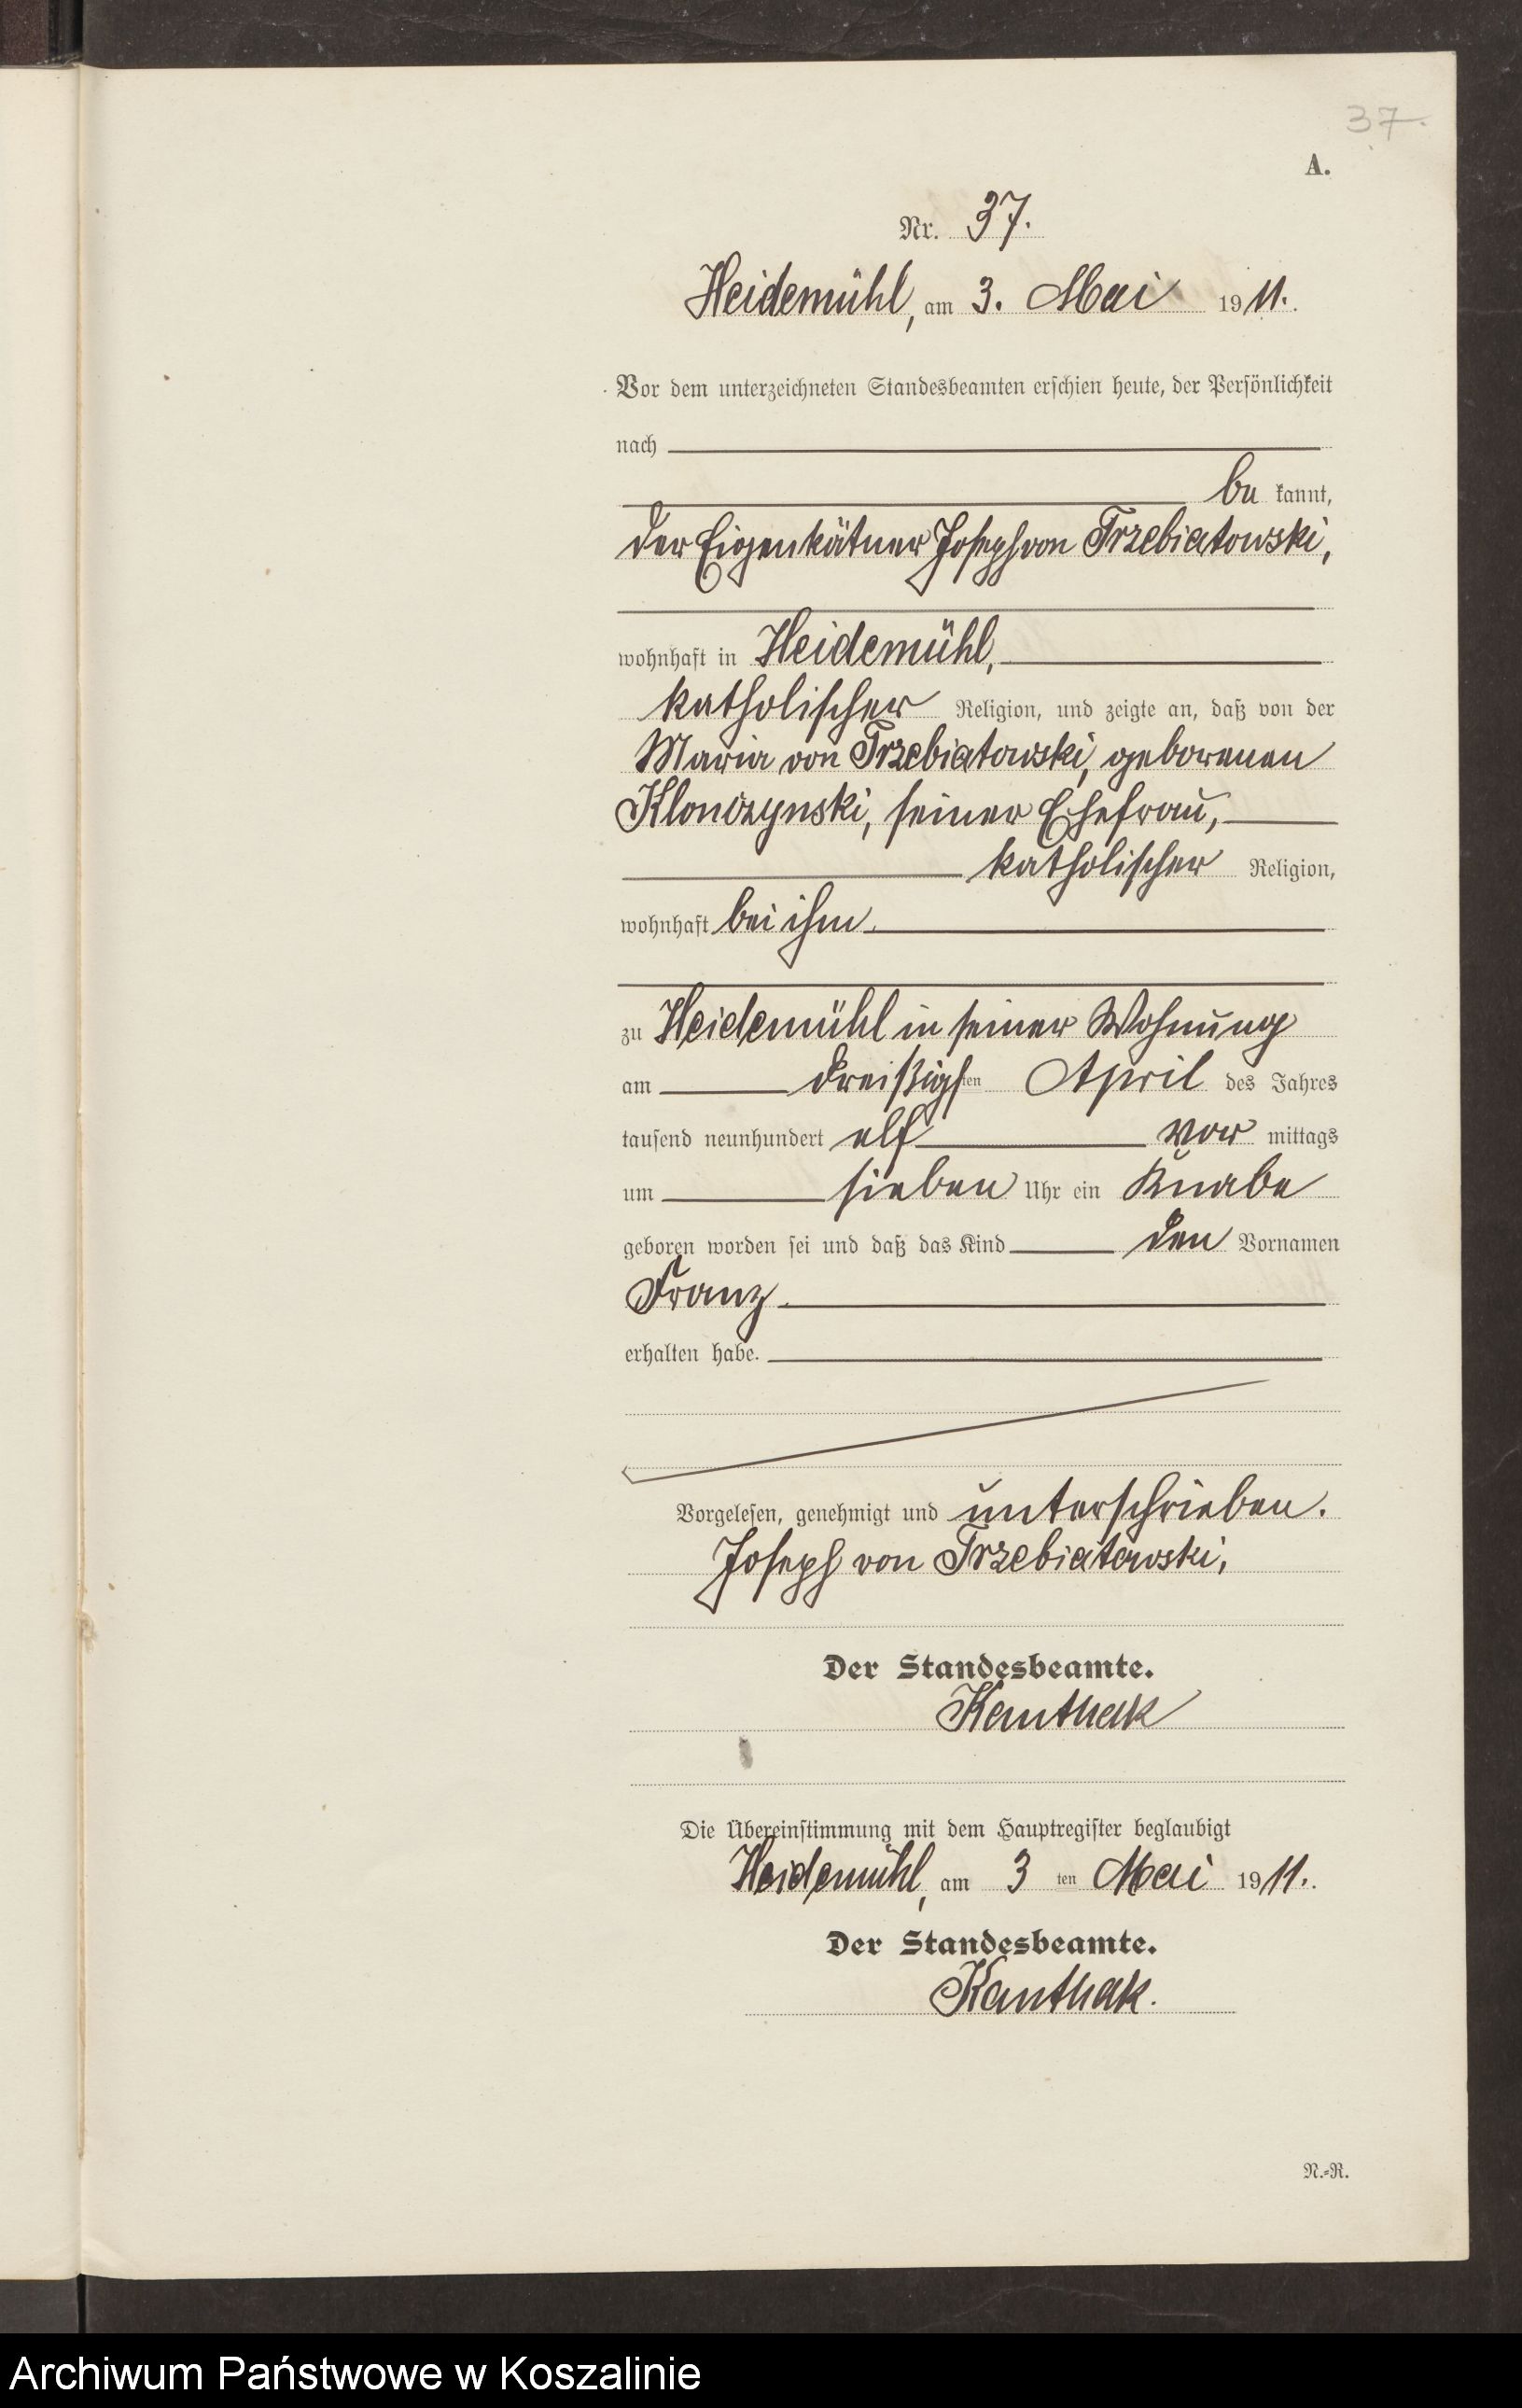 37.
A.
Nr. 37.
Heidemühl, am 3. Mai 1911.
Vor dem unterzeichneten Standesbeamten erschien heute, der Persönlichkeit
nach
be kannt,
der Eigenkätner Joseph von Trzebiatowski,
wohnhaft in Heidemühl,
katholischer Religion, und zeigte an, daß von der
Maria von Trzebiatowski, geborenen
Klonczynski, seiner Ehefrau,
katholischer Religion,
wohnhaft bei ihm
zu Heidemühl in seiner Wohnung
am dreißigsten April des Jahres
tausend neunhundert elf vor mittags
um sieben Uhr ein Knabe
geboren worden sei und daß das Kind den Vornamen
Franz
erhalten habe.
Vorgelesen, genehmigt und unterschrieben.
Joseph von Trzebiatowski,
Der Standesbeamte.
Kanthak
Die Übereinstimmung mit dem Hauptregister beglaubigt
Heidemühl, am 3 ten Mai 1911.
Der Standesbeamte.
Kanthak.
N.=R.
Archiwum Państwowe w Koszalinie